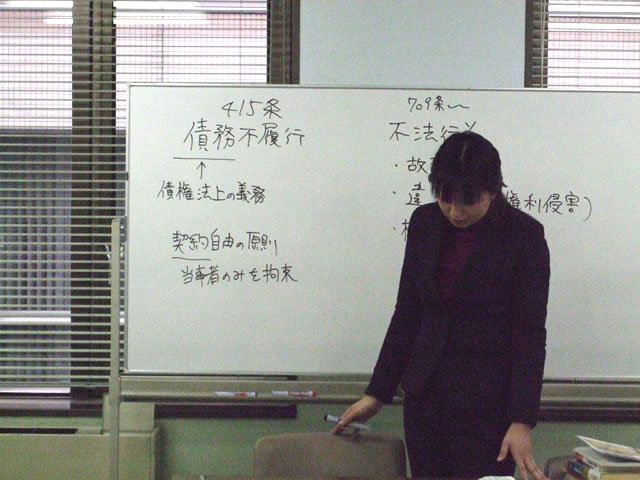 415条
債務不履行
↑
債権法上の義務
契約自由の原則
当事者のみを拘束
709条〜
不法行
・故
・違 権利侵害)
・